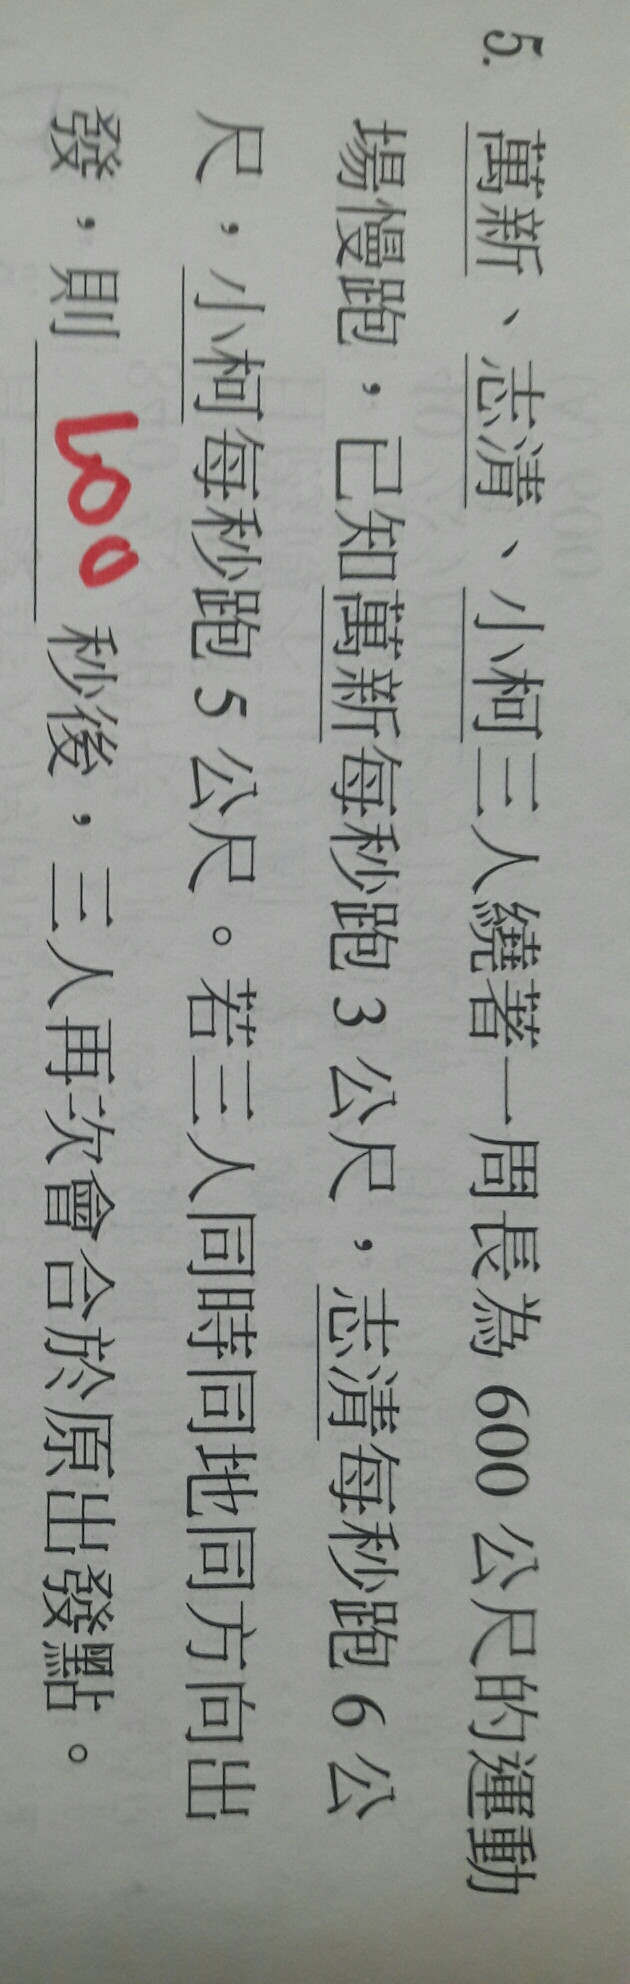 5. 萬新、志清、小柯三人繞著一周長為 600 公尺的運動
場慢跑，已知萬新每秒跑 3 公尺，志清每秒跑 6 公
尺，小柯每秒跑 5 公尺。若三人同時同地同方向出
發，則 600 秒後，三人再次會合於原出發點。